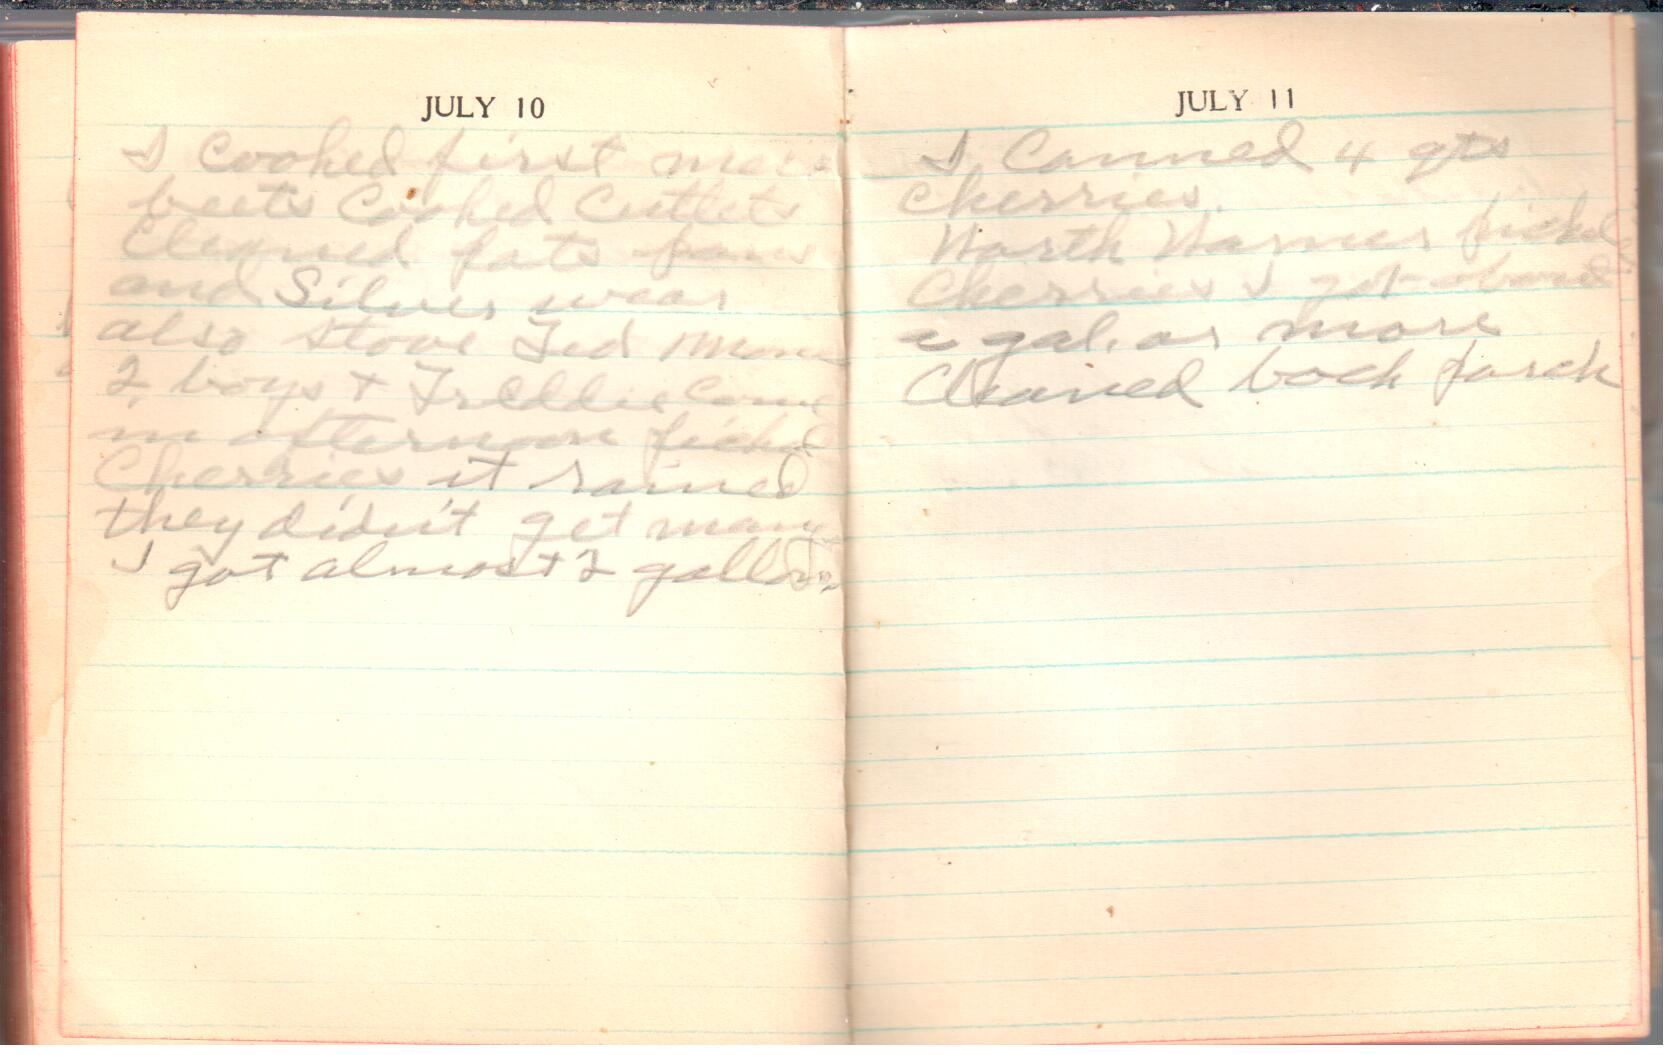 JULY 10
I cooked first mess
beets Cooked Cutlets
Cleaned pots pans
and Silver wear
also stove Ted Mom
2 boys + Freddie Come
in afternoon picked
Cherries it rained
they didn't get many
I got almost 2 gallons
JULY 11
I Canned 4 qts
cherries.
Worth Warner picked
Cherries I got about
a gal. or more
Cleaned back porch